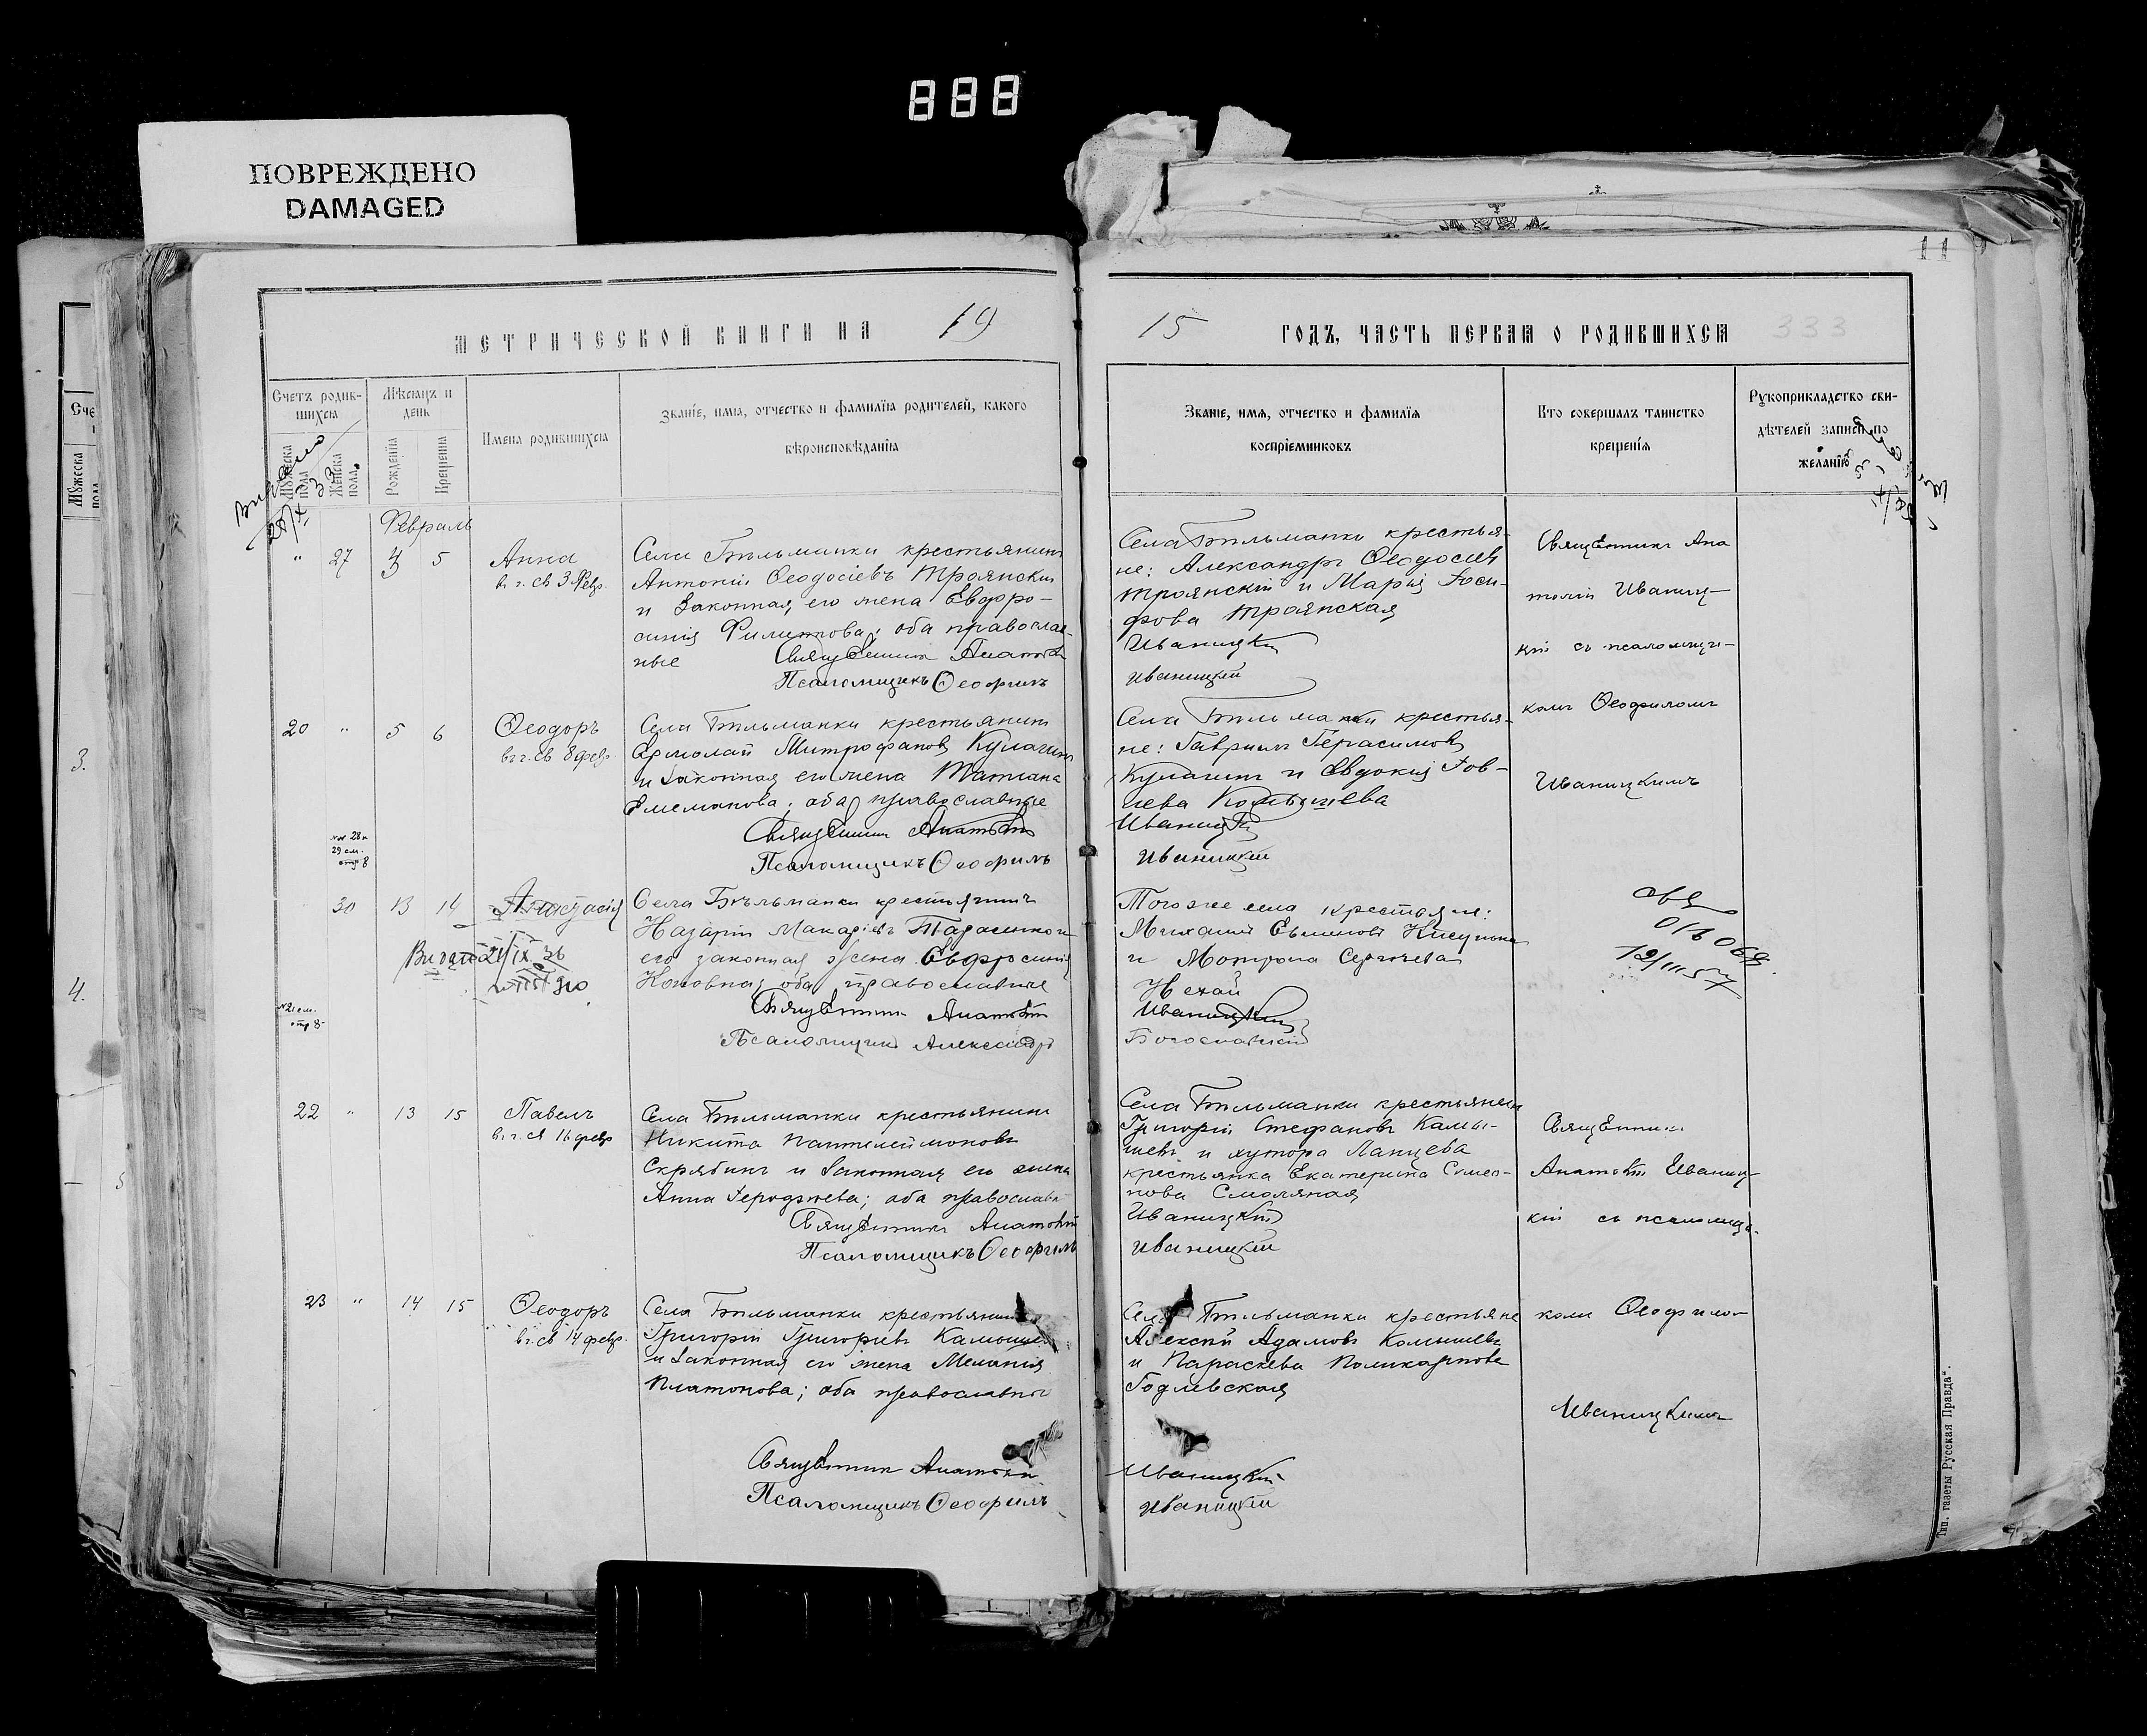 888
ПОВРЕЖДЕНО
DAMAGED
11
МЕТРИЧЕСКОЙ КНИГИ НА 19
15 ГОДЪ, ЧАСТЬ ПЕРВАЯ О РОДИВШИХСЯ 333
Счетъ родив-
шихся
Мѣсяцъ и
день
Имена родившихся
Званіе, имя, отчество и фамилія родителей, какого
вѣроисповѣданія
Мужеска
пола
Женска
пола
Рожденія
Крещенія
Званіе, имя, отчество и фамилія
воспріемниковъ
Кто совершалъ таинство
крещенія
Рукоприкладство сви-
дѣтелей записи по
желанію
Февраль
" 27 3 5 Анна
въ ч. св 3 Февр.
Села Бѣльманки крестьянинъ
Антоній Ѳеодосіевъ Троянскій
и законная его жена Евфро-
синія Филиппова; оба православ-
ные Священникъ Анатолій
Псаломщикъ Ѳеофилъ
Села Бѣльманки крестья-
не: Александръ Ѳеодосіевъ
Троянскій и Марія Іоси-
фова Троянская
Иваницкій
Иваницкій
Священникъ Ана
толій Иваниц-
кій съ псаломщи-
комъ Ѳеофиломъ
Иваницкимъ
20 " 5 6 Ѳеодоръ
въ ч. св 8 февр.
Села Бѣльманки крестьянинъ
Ермолай Митрофановъ Кулагинъ
и законная его жена Татіана
Емеліанова; оба православные
Священникъ Анатолій
Псаломщикъ Ѳеофилъ
Села Бѣльманки крестья-
не: Гавріилъ Герасимовъ
Кулагинъ и Евдокія Іов-
лева Комышева
Иваницкій
Иваницкій
№№ 28 и
29 см.
стр 8
30 13 14 Анастасія
Села Бѣльманки крестьянинъ
Назарій Макаріевъ Тарасенко и
его законная жена Евфросинія
Кононова; оба православные
Священникъ Анатолій
Псаломщикъ Александръ
Того же села крестьяне:
Михаилъ
и Мотрона Сергіева
Нехай
Иваницкій
Богославскій
№ 21 см.
стр 8
22 " 13 15 Павелъ
въ ч. св 16 февр
Села Бѣльманки крестьянинъ
Никита Пантелеймоновъ
Скрябинъ и законная его жена
Анна Іеродіонова; оба православн
Священникъ Анатолій
Псаломщикъ Ѳеофилъ
Села Бѣльманки крестьянинъ
Григорій Стефановъ Камы-
шевъ и хутора Ланцева
крестьянка Екатерина Симео-
нова Смоляная
Иваницкій
Иваницкій
Священникъ
Анатолій Иваниц-
кій съ псаломщи-
комъ Ѳеофило-
Иваницкимъ
23 " 14 15 Ѳеодоръ
въ ч. св 14 февр.
Села Бѣльманки крестьянинъ
Григорій Григоріевъ Камышев
и законная его жена Меланія
Платонова; оба православные
Священникъ Анатолій
Псаломщикъ Ѳеофилъ
Села Бѣльманки крестьяне
Алексѣй Адамовъ Комышевъ
и Параскева Поликарпова
Годлевская
Иваницкій
Иваницкій
Тип. газеты Русская Правда".
3.
4.